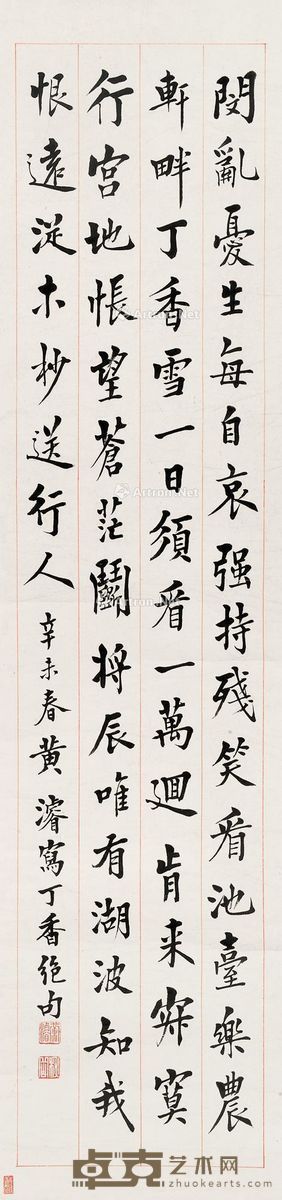 閔亂憂生每自哀强持殘笑看池臺樂農
軒畔丁香雪一日須看一萬迴肯来寂寞
行宮地悵望蒼茫鬭將辰唯有湖波知我
恨遠從木杪送行人 辛未春黃濬寫丁香絕句
Artron.Net
卓克艺术网
zhuokearts.com